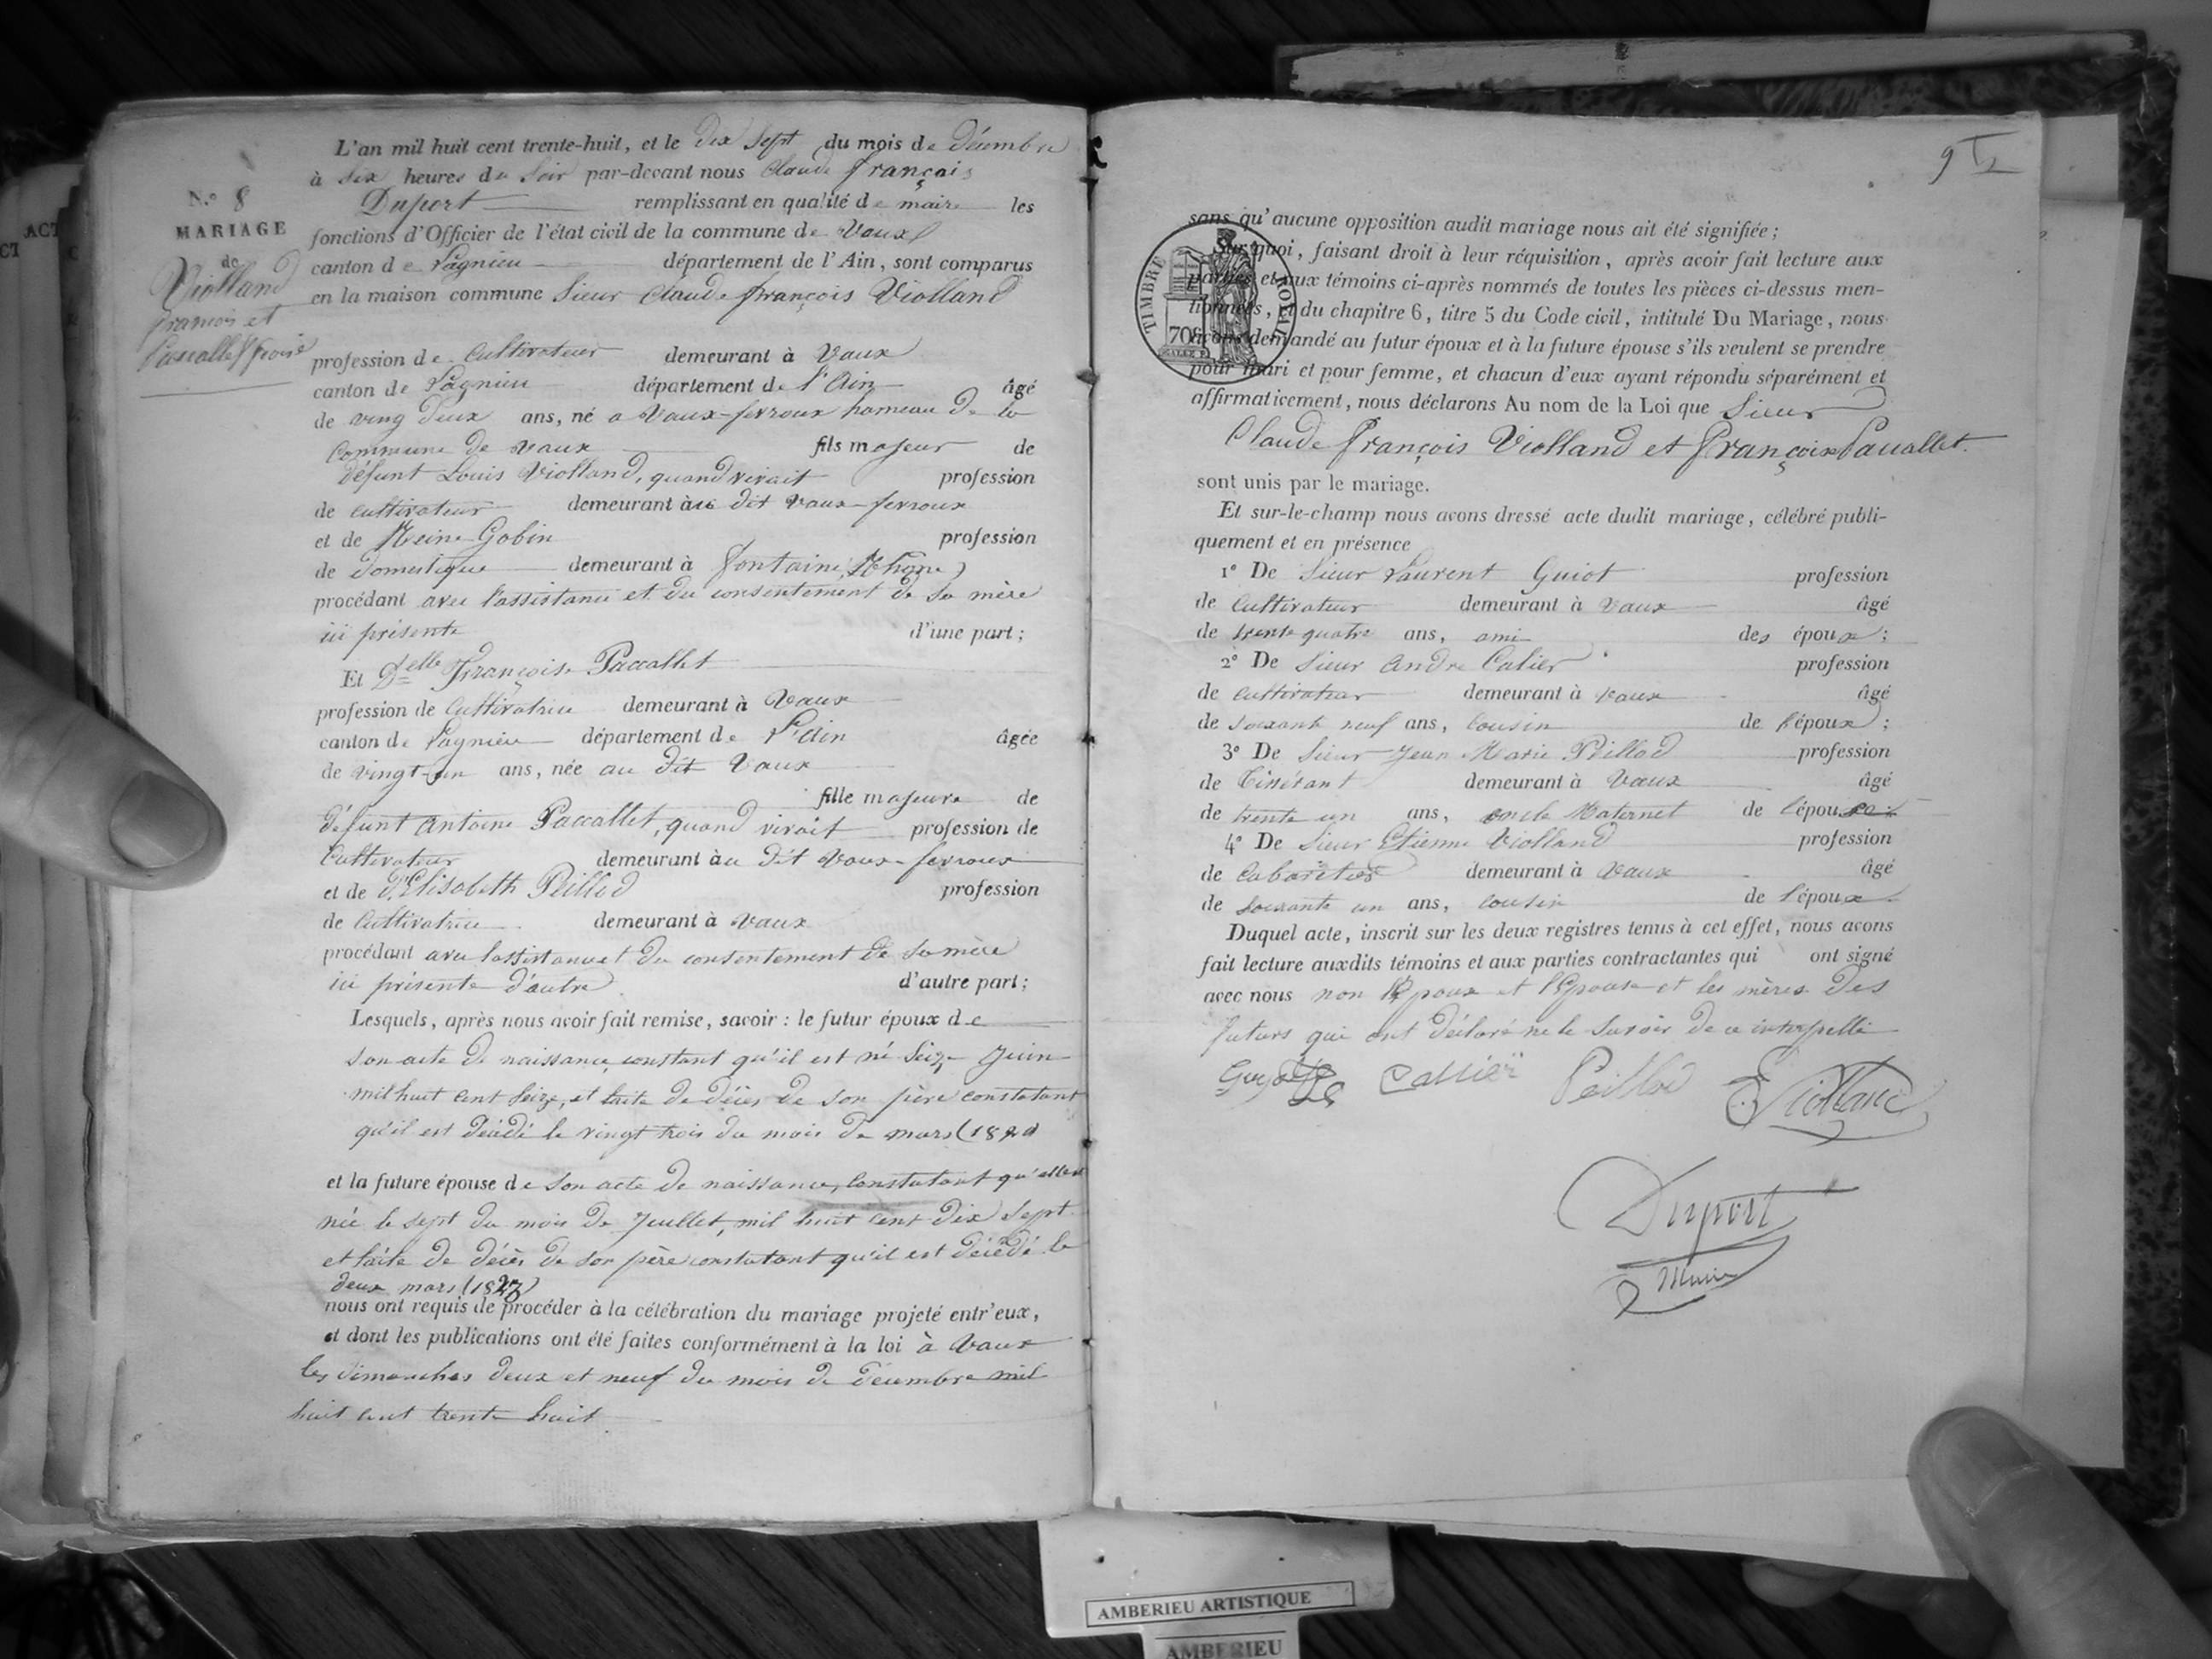 L'an mil huit cent trente-huit, et le dix sept du mois de décembre
à six heures du soir par-devant nous Claude françois
Duport remplissant en qualité de maire les
fonctions d'Officier de l'état civil de la commune de Vaux
canton de Lagnieu département de l'Ain, sont comparus
en la maison commune Sieur Claude françois Violland
N.o 8
MARIAGE
de
Violland
francois et
Paccallet
profession de Cultivateur demeurant à Vaux
canton de Lagnieu département de l'Ain âgé
de ving deux ans, né a Vaux-fevroux hameau de la
Commune de Vaux fils majeur de
défunt Louis Violland, quand vivait profession
de cultivateur demeurant au dit Vaux-fevroux
et de Reine Gobin profession
de domestique demeurant à fontaine (Rhone)
procédant avec l'assistance et du consentement de sa mère
ici présente d'une part;
Et Delle Françoise Paccallet
profession de Cultivatrice demeurant à Vaux
canton de Lagnieu département de l'ain âgée
de vingt-un ans, née au dit Vaux
fille majeure de
défunt antoine Paccallet, quand vivait profession de
Cultivateur demeurant au dit Vaux-fevroux
et de Elisabeth Peillod profession
de Cultivatrice demeurant à Vaux
procédant avec l'assistance et du consentement de sa mère
ici présente d'autre d'autre part;
Lesquels, après nous avoir fait remise, savoir : le futur époux de
son acte de naissance, constant qu'il est né Seize Juin
mil huit cent seize, et l'acte de décès de son père constatant
qu'il est décédé le vingt trois du mois de mars
et la future épouse de son acte de naissance, constatant qu'elle
née le sept du mois de Juillet, mil huit cent dix sept
et l'acte de décès de son père constatant qu'il est décédé le
deux mars
nous ont requis de procéder à la célébration du mariage projeté entr'eux,
et dont les publications ont été faites conformément à la loi à Vaux
les dimanches deux et neuf du mois de décembre mil
huit cent trente huit
sans qu'aucune opposition audit mariage nous ait été signifiée;
Sur quoi, faisant droit à leur réquisition, après avoir fait lecture aux
parties et aux témoins ci-après nommés de toutes les pièces ci-dessus men-
tionnées, et du chapitre 6, titre 5 du Code civil, intitulé Du Mariage, nous
avons demandé au futur époux et à la future épouse s'ils veulent se prendre
pour mari et pour femme, et chacun d'eux ayant répondu séparément et
affirmativement, nous déclarons Au nom de la Loi que Sieur
Claude François Violland et Françoise Paccallet.
sont unis par le mariage.
TIMBRE ROYAL
70
Et sur-le-champ nous avons dressé acte dudit mariage, célébré publi-
quement et en présence
1° De Sieur Laurent Guiot profession
de Cultivateur demeurant à Vaux âgé
de trente quatre ans, ami des époux;
2° De Sieur andre Calier profession
de cultivateur demeurant à Vaux âgé
de soixante neuf ans, cousin de l'époux;
3° De Sieur Jean Marie Peillod profession
de Tissérant demeurant à Vaux âgé
de trente un ans, oncle Maternel de l'épouse
4° De Sieur Etienne Violland profession
de Cabaretier demeurant à Vaux âgé
de soixante un ans, cousin de l'époux
Duquel acte, inscrit sur les deux registres tenus à cet effet, nous avons
fait lecture auxdits témoins et aux parties contractantes qui ont signé
avec nous non l'Epoux et l'Epouse et les mères des
futurs qui ont déclaré ne le savoir de ce interpellé
Callier Peillod E. Violland
Duport
Maire
AMBERIEU ARTISTIQUE
AMBERIEU